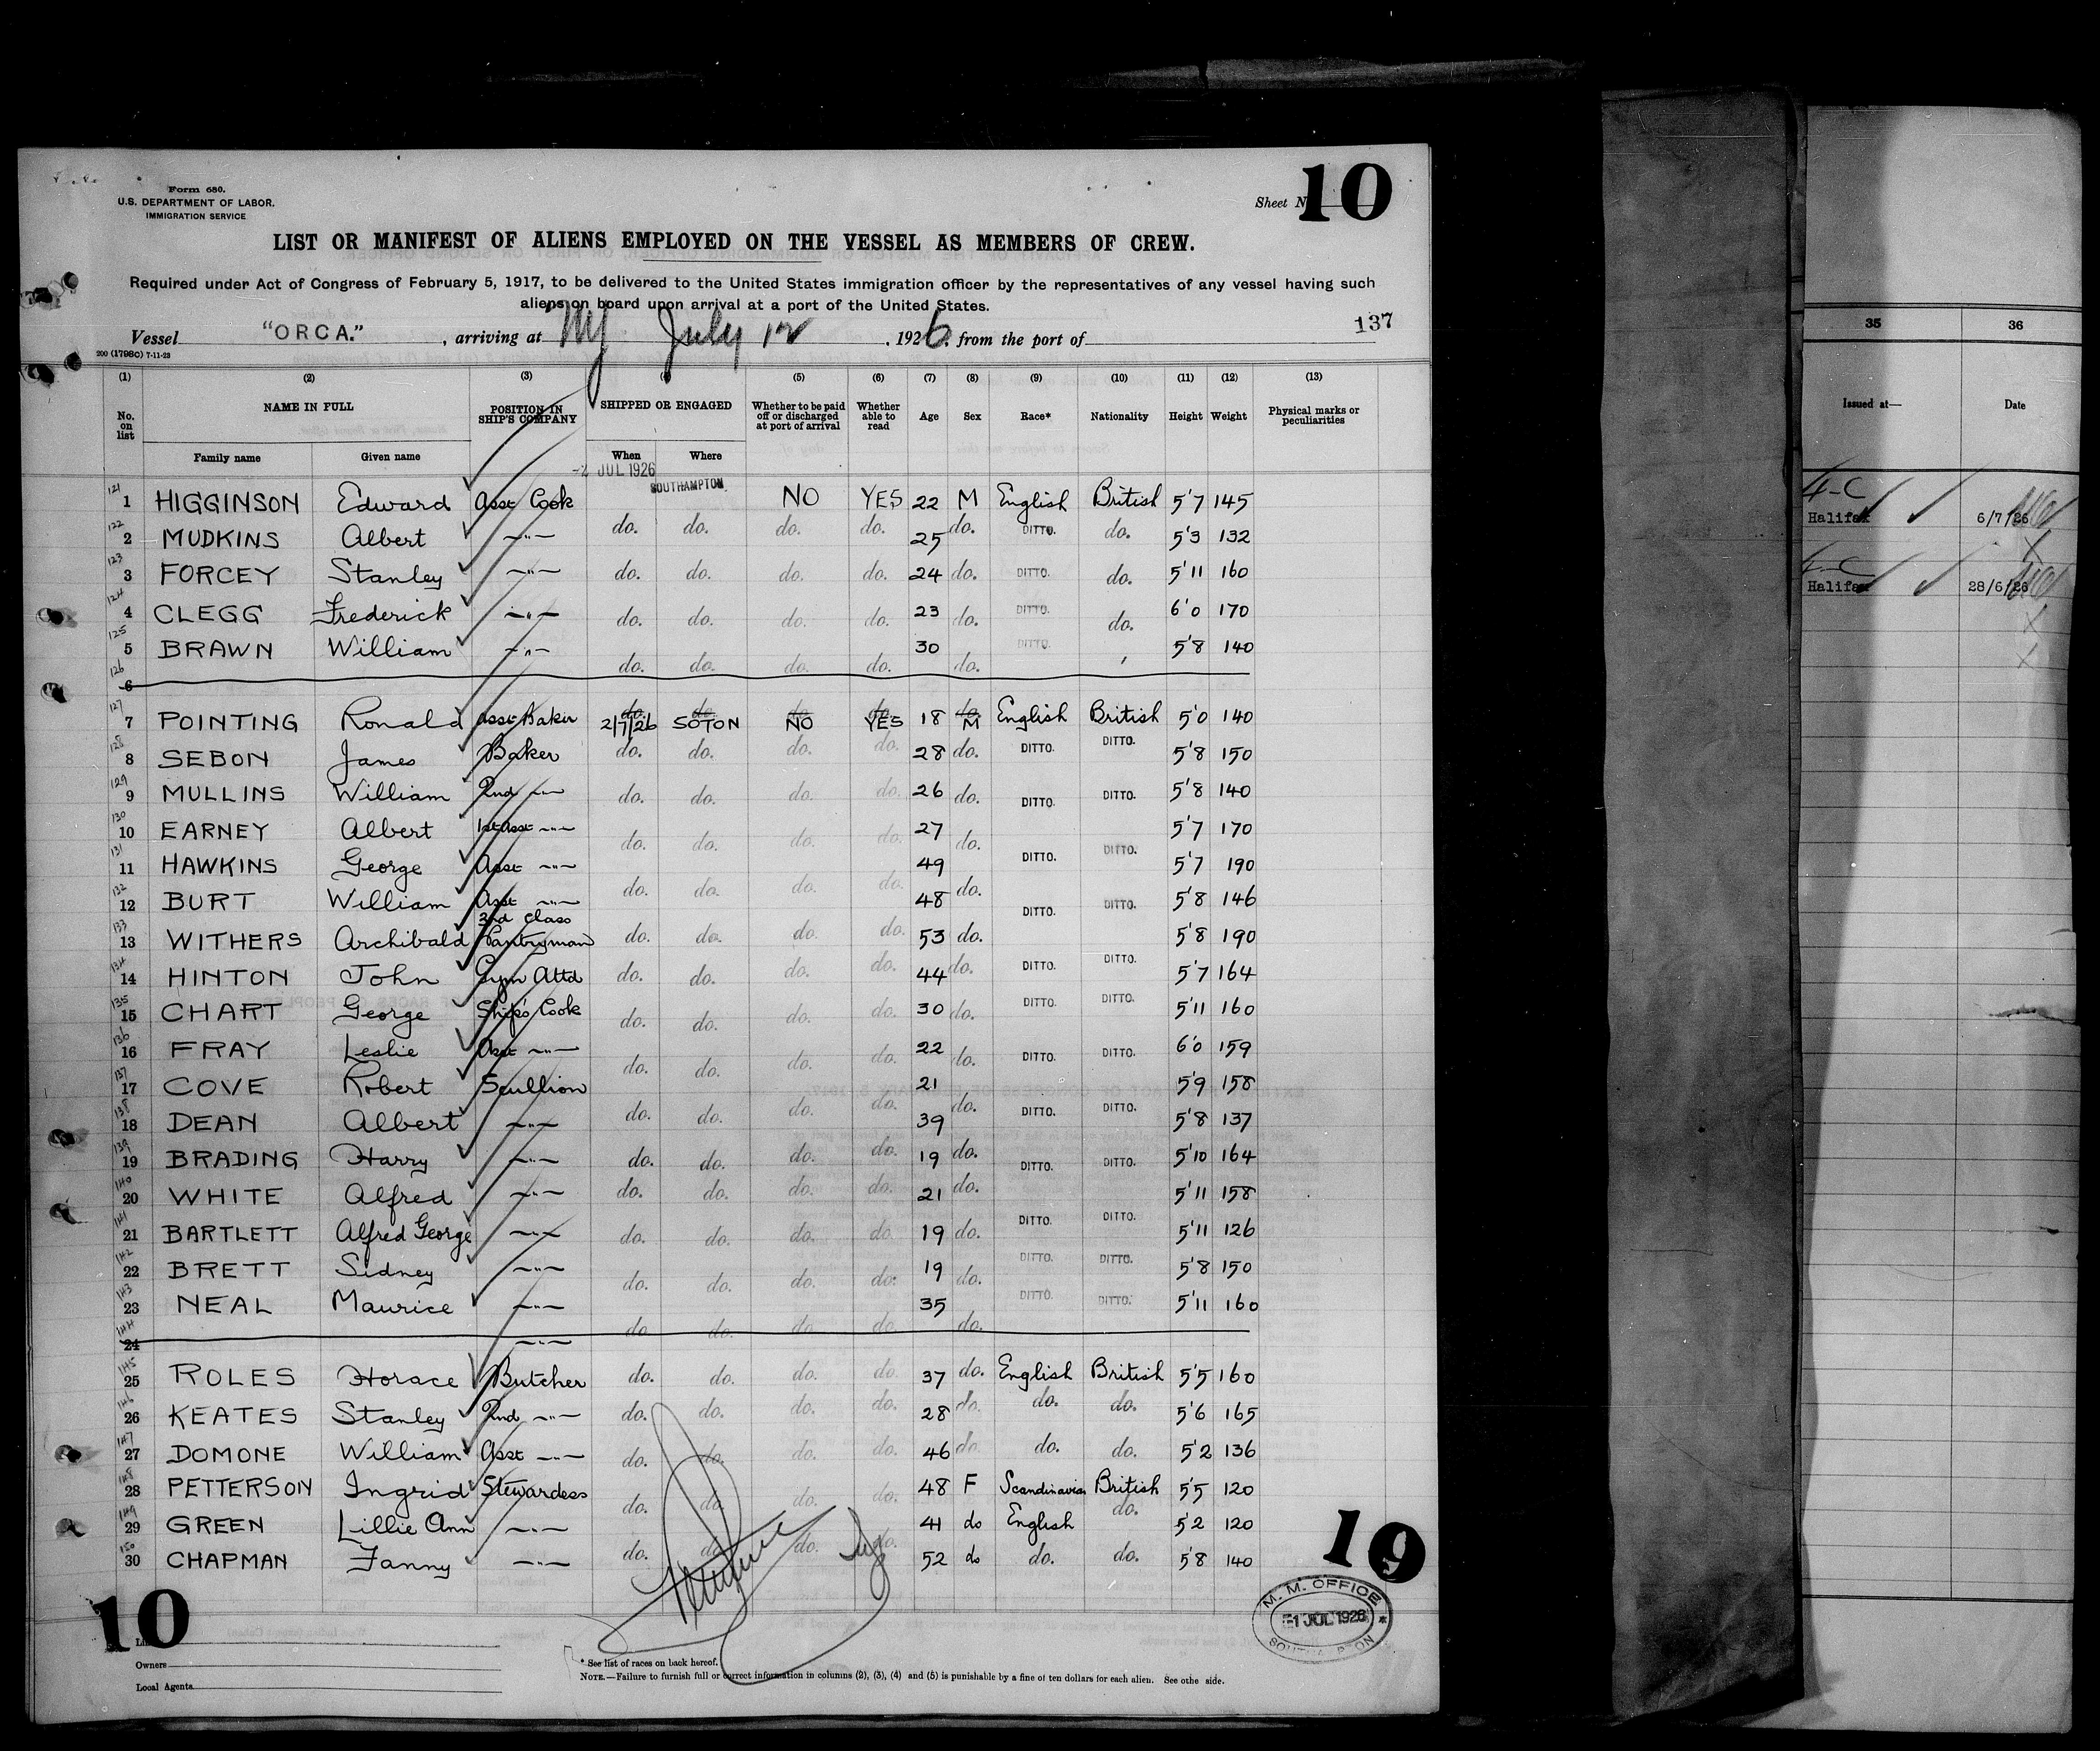 Form 680.
U.S. DEPARTMENT OF LABOR.
IMMIGRATION SERVICE
Sheet N 10
LIST OR MANIFEST OF ALIENS EMPLOYED ON THE VESSEL AS MEMBERS OF CREW.
Required under Act of Congress of February 5, 1917, to be delivered to the United States immigration officer by the representatives of any vessel having such
aliens on board upon arrival at a port of the United States.
137
Vessel "ORCA." , arriving at NY July 12 , 1926, from the port of
200 (1798C) 7-11-23
(1) (2) (3) (4) (5) (6) (7) (8) (9) (10) (11) (12) (13)
No. on list NAME IN FULL POSITION IN SHIP'S COMPANY SHIPPED OR ENGAGED Whether to be paid off or discharged at port of arrival Whether able to read Age Sex Race* Nationality Height Weight Physical marks or peculiarities
Family name Given name When Where
-2 JUL 1926 SOUTHAMPTON
121 1 HIGGINSON Edward Asst Cook NO YES 22 M English British 5'7 145
122 2 MUDKINS Albert —"— do. do. do. do. 25 do. DITTO. do. 5'3 132
123 3 FORCEY Stanley —"— do. do. do. do. 24 do. DITTO. do. 5'11 160
124 4 CLEGG Frederick —"— do. do. do. do. 23 do. DITTO. do. 6'0 170
125 5 BRAWN William —"— do. do. do. do. 30 do. DITTO. 5'8 140
126 6
127 7 POINTING Ronald Asst Baker 2/7/26 SOTON NO YES 18 M English British 5'0 140
128 8 SEBON James Baker do. do. do. do. 28 do. DITTO. DITTO. 5'8 150
129 9 MULLINS William 2nd —"— do. do. do. do. 26 do. DITTO. DITTO. 5'8 140
130 10 EARNEY Albert 1st Asst —"— do. do. do. do. 27 do. DITTO. DITTO. 5'7 170
131 11 HAWKINS George Asst —"— do. do. do. do. 49 do. DITTO. DITTO. 5'7 190
132 12 BURT William Asst —"— 48 5'8 146
133 13 WITHERS Archibald 2nd Class Pantryman do. do. do. do. 53 do. DITTO. DITTO. 5'8 190
134 14 HINTON John Gym Attd do. do. do. do. 44 do. DITTO. DITTO. 5'7 164
135 15 CHART George Ship's Cook do. do. do. do. 30 do. DITTO. DITTO. 5'11 160
136 16 FRAY Leslie Asst —"— do. do. do. do. 22 do. DITTO. DITTO. 6'0 159
137 17 COVE Robert Scullion 21 5'9 158
138 18 DEAN Albert —"— do. do. do. do. 39 do. DITTO. DITTO. 5'8 137
139 19 BRADING Harry —"— do. do. do. do. 19 do. DITTO. DITTO. 5'10 164
140 20 WHITE Alfred —"— do. do. do. do. 21 do. 5'11 158
141 21 BARTLETT Alfred George —"— do. do. do. do. 19 do. DITTO. DITTO. 5'11 126
142 22 BRETT Sidney —"— do. do. do. do. 19 do. DITTO. DITTO. 5'8 150
143 23 NEAL Maurice —"— do. do. do. do. 35 do. DITTO. DITTO. 5'11 160
144 24 —"—
145 25 ROLES Horace Butcher do. do. do. do. 37 do. English British 5'5 160
146 26 KEATES Stanley 2nd —"— do. do. do. do. 28 do. do. do. 5'6 165
147 27 DOMONE William Asst —"— do. do. do. do. 46 do. do. do. 5'2 136
148 28 PETTERSON Ingrid Stewardess do. do. do. do. 48 F Scandinavian British 5'5 120
149 29 GREEN Lillie Ann —"— 41 do English do. 5'2 120
150 30 CHAPMAN Fanny —"— do. do. do. do. 52 do do. do. 5'8 140
19
M. M. OFFICE
-1 JUL 1926
10
Owners
Local Agents
* See list of races on back hereof.
NOTE.—Failure to furnish full or correct information in columns (2), (3), (4) and (5) is punishable by a fine of ten dollars for each alien. See othe side.
35 36
Issued at— Date
4-C
Halifax 6/7/26
4-C
Halifax 28/6/26